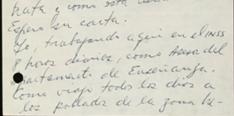 trata y como está
Espero su carta.
Yo, trabajando aquí en el INSS
8 horas diarias, como Asesor del
Departamento de Enseñanza.
Como viajo todos los días a
los poblados de la zona